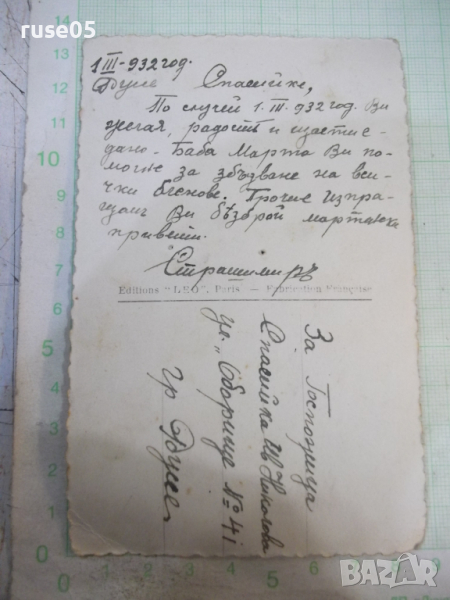 ruse05
1 III - 932 год.
Русе Спасийке,
По случей 1. III. 932 год. Ви
желая, радость и щастие -
дано - Баба Марта Ви по-
могне за збъдване на вси-
чки блянове. Прочие изпра-
щам Ви безброй мартенски
привети.
Страшимиръ
Editions "LEO", Paris — Fabrication Française
За Госпожица
Спасийка Ив Николова
ул. "Оборище № 41
гр Русе
BAZAR
bg